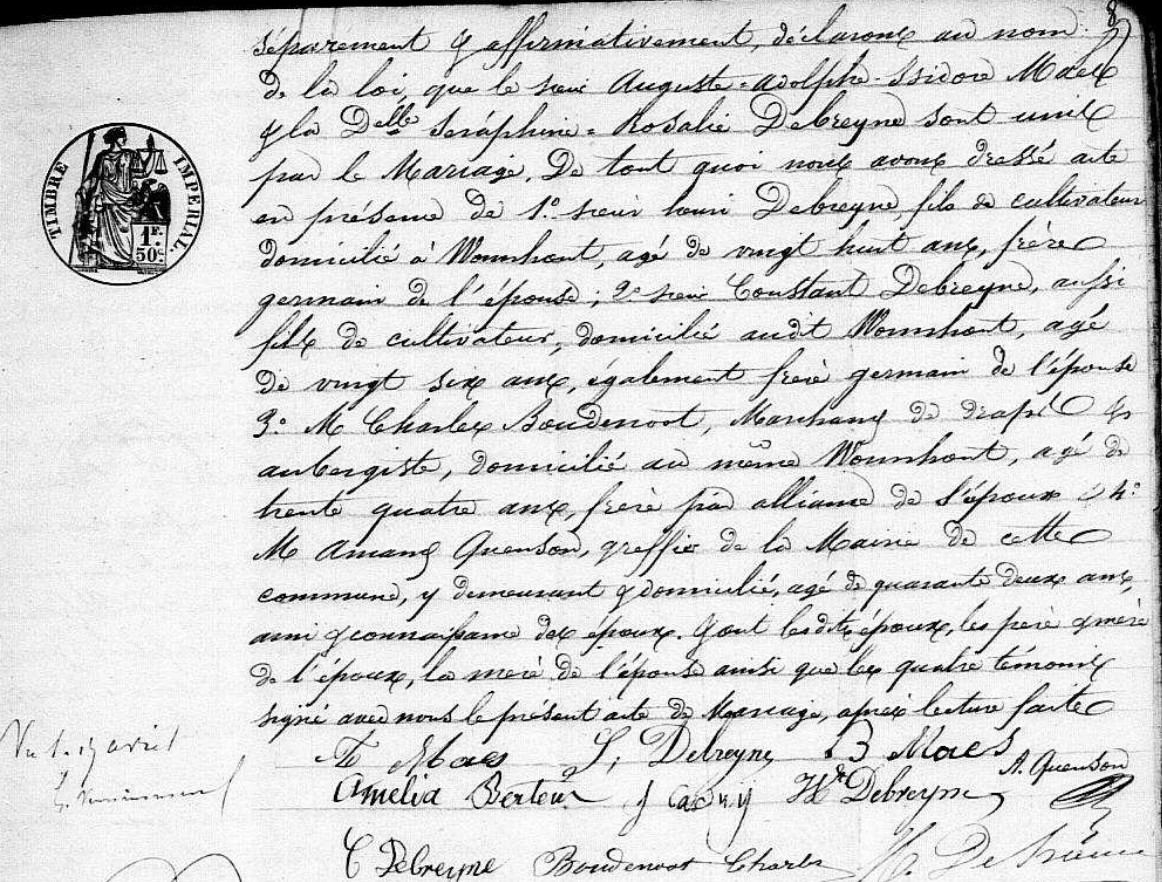 8
séparement & affirmativement, déclarons au nom
de la loi, que le sieur Auguste-Adolphe-Isidore Maes
& la Delle Séraphine-Rosalie Debreyne sont unis
par le Mariage. De tout quoi nous avons dressé acte
en présence de 1º. sieur henri Debreyne, fils de cultivateur
domicilié à Wormhout, agé de vingt huit ans, frère
germain de l'épouse; 2º sieur Constant Debreyne, aussi
fils de cultivateur, domicilié audit Wormhout, agé
de vingt six ans, également frère germain de l'épouse
3º M Charles Boudenoot, Marchand de draps &
aubergiste, domicilié au même Wormhout, agé de
trente quatre ans, frère par alliance de l'époux & 4º
M Amand Quenson, greffier de la Mairie de cette
commune, y demeurant & domicilié, agé de quarante deux ans,
ami & connaissance des époux. & ont lesdits époux, les père & mère
de l'époux, la mère de l'épouse ainsi que les quatre témoins
signé avec nous le présent acte de Mariage, après lecture faite
Maes S, Debreyne Maes
A. Quenson
Amelia Berteur Hri Debreyne
C Debreyne Boudenoot Charles
TIMBRE IMPERIAL.
1F.
50c
avril